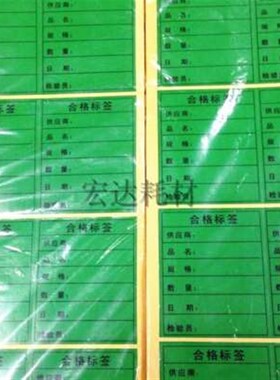 供应商:
品 名:
规 格:
数 量:
日 期:
检验员:
品 名:
规 格:
数 量:
日 期:
检验员:
合格标签 合格标签
供应商:
品 名:
规 格:
数 量:
日 期:
检验员:
合格标签
供应商:
品 名:
规 格:
数 量:
日 期:
检验员:
宏达耗材
合格标签 合格标签
供应商:
规 格:
数 量:
日 期:
检验员:
合格标签
供应商:
品 名:
规 格:
数 量:
日 期:
检验员:
合格标签 合格标签
供应商:
合格标签
供应商: